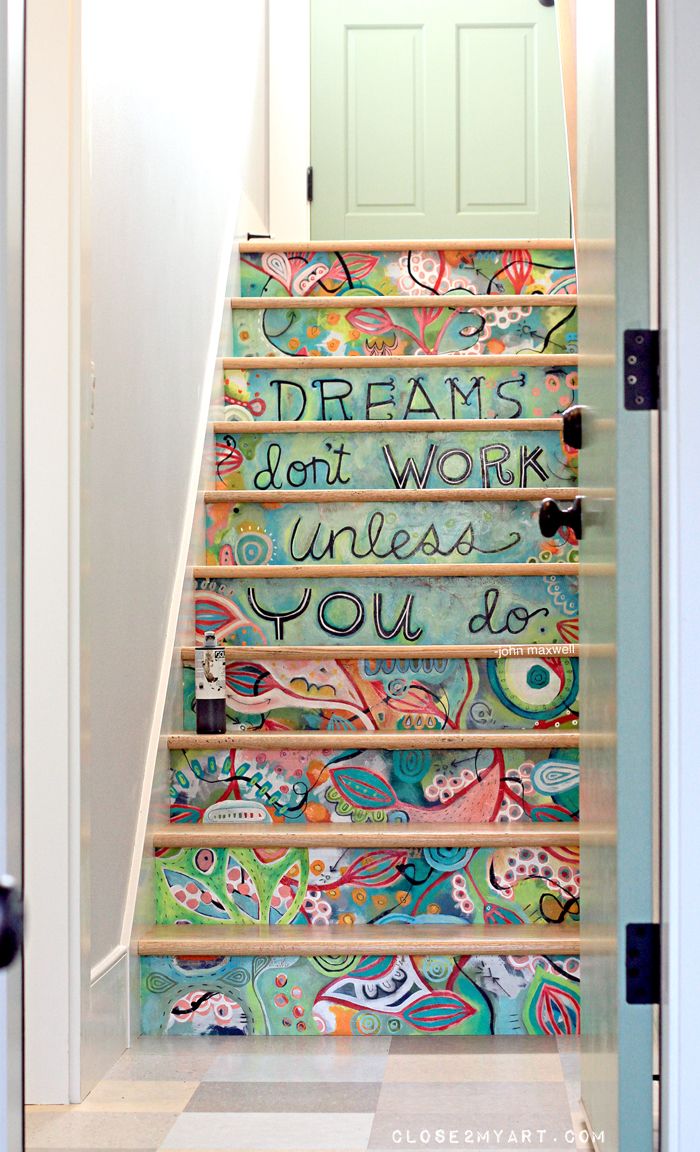 DREAMS
don't WORK
unless
YOU do
-john maxwell
CLOSE2MYART.COM